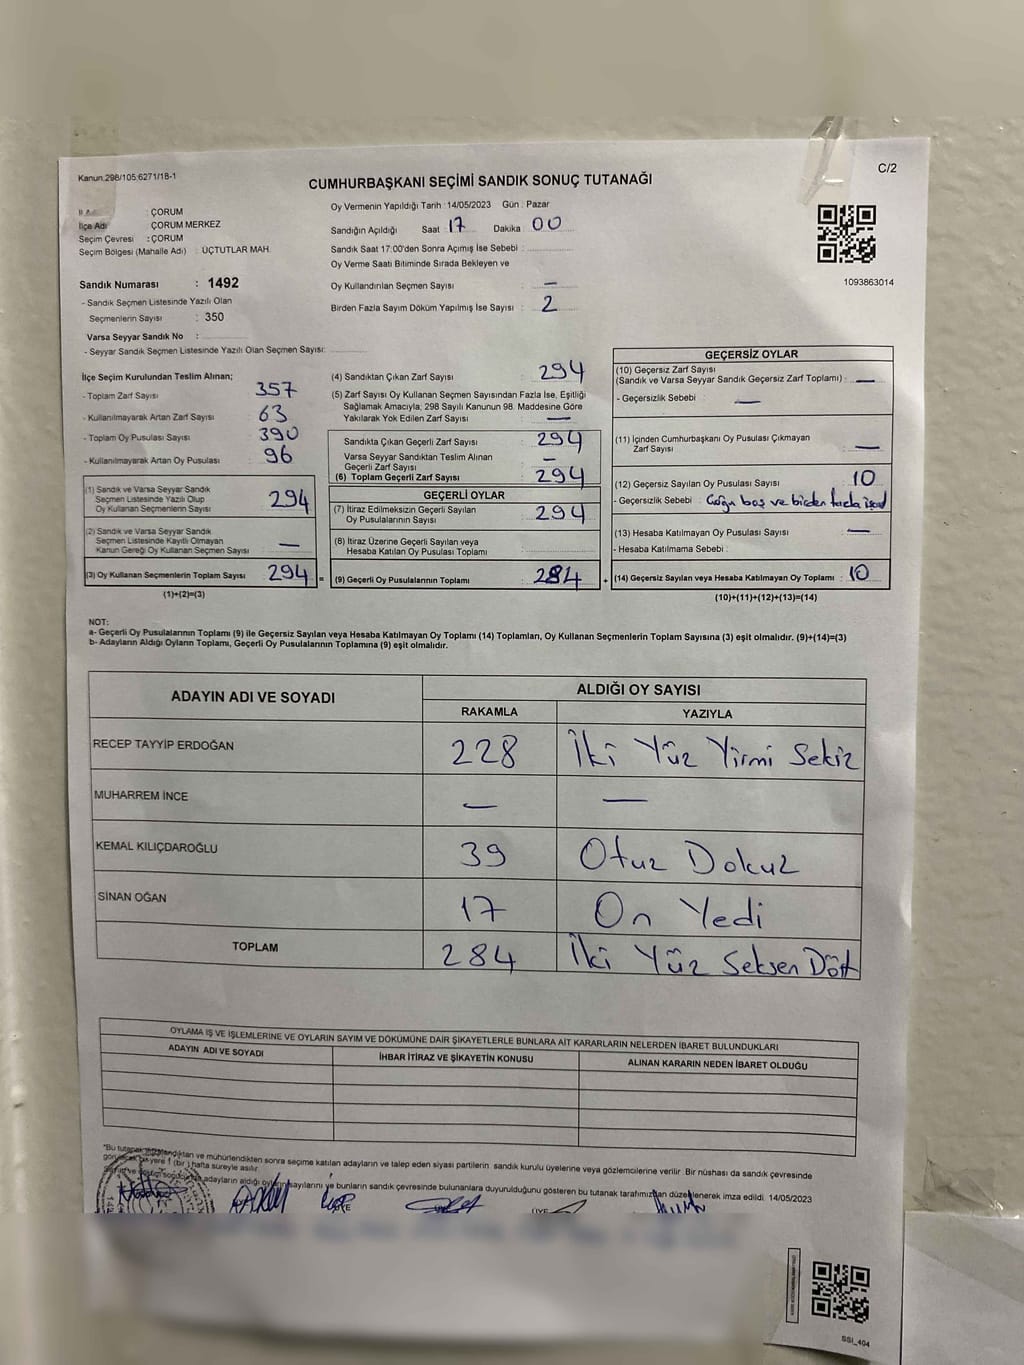 Kanun:298/105;6271/18-1
C/2
CUMHURBAŞKANI SEÇİMİ SANDIK SONUÇ TUTANAĞI
İl Adı : ÇORUM
İlçe Adı : ÇORUM MERKEZ
Seçim Çevresi : ÇORUM
Seçim Bölgesi (Mahalle Adı) : ÜÇTUTLAR MAH.
Sandık Numarası : 1492
- Sandık Seçmen Listesinde Yazılı Olan
Seçmenlerin Sayısı : 350
Varsa Seyyar Sandık No :
- Seyyar Sandık Seçmen Listesinde Yazılı Olan Seçmen Sayısı:
Oy Vermenin Yapıldığı Tarih : 14/05/2023 Gün : Pazar
Sandığın Açıldığı Saat : 17 Dakika 00
Sandık Saat 17:00'den Sonra Açımış İse Sebebi :
Oy Verme Saati Bitiminde Sırada Bekleyen ve
Oy Kullandırılan Seçmen Sayısı : —
Birden Fazla Sayım Döküm Yapılmış İse Sayısı : 2
1093863014
İlçe Seçim Kurulundan Teslim Alınan;
- Toplam Zarf Sayısı : 357
- Kullanılmayarak Artan Zarf Sayısı : 63
- Toplam Oy Pusulası Sayısı : 390
- Kullanılmayarak Artan Oy Pusulası : 96
(1) Sandık ve Varsa Seyyar Sandık
Seçmen Listesinde Yazılı Olup
Oy Kullanan Seçmenlerin Sayısı : 294
(2) Sandık ve Varsa Seyyar Sandık
Seçmen Listesinde Kayıtlı Olmayan
Kanun Gereği Oy Kullanan Seçmen Sayısı : —
(3) Oy Kullanan Seçmenlerin Toplam Sayısı : 294
(1)+(2)=(3)
(4) Sandıktan Çıkan Zarf Sayısı : 294
(5) Zarf Sayısı Oy Kullanan Seçmen Sayısından Fazla İse, Eşitliği
Sağlamak Amacıyla, 298 Sayılı Kanunun 98. Maddesine Göre
Yakılarak Yok Edilen Zarf Sayısı : —
Sandıkta Çıkan Geçerli Zarf Sayısı : 294
Varsa Seyyar Sandıktan Teslim Alınan
Geçerli Zarf Sayısı : —
(6) Toplam Geçerli Zarf Sayısı : 294
GEÇERLİ OYLAR
(7) İtiraz Edilmeksizin Geçerli Sayılan
Oy Pusulalarının Sayısı : 294
(8) İtiraz Üzerine Geçerli Sayılan veya
Hesaba Katılan Oy Pusulası Toplamı :
= (9) Geçerli Oy Pusulalarının Toplamı : 284
GEÇERSİZ OYLAR
(10) Geçersiz Zarf Sayısı
(Sandık ve Varsa Seyyar Sandık Geçersiz Zarf Toplamı) : —
- Geçersizlik Sebebi : —
(11) İçinden Cumhurbaşkanı Oy Pusulası Çıkmayan
Zarf Sayısı : —
(12) Geçersiz Sayılan Oy Pusulası Sayısı : 10
- Geçersizlik Sebebi : boş ve birden fazla
(13) Hesaba Katılmayan Oy Pusulası Sayısı : —
- Hesaba Katılmama Sebebi :
+ (14) Geçersiz Sayılan veya Hesaba Katılmayan Oy Toplamı : 10
(10)+(11)+(12)+(13)=(14)
NOT:
a- Geçerli Oy Pusulalarının Toplamı (9) ile Geçersiz Sayılan veya Hesaba Katılmayan Oy Toplamı (14) Toplamları, Oy Kullanan Seçmenlerin Toplam Sayısına (3) eşit olmalıdır. (9)+(14)=(3)
b- Adayların Aldığı Oyların Toplamı, Geçerli Oy Pusulalarının Toplamına (9) eşit olmalıdır.
ADAYIN ADI VE SOYADI ALDIĞI OY SAYISI
RAKAMLA YAZIYLA
RECEP TAYYİP ERDOĞAN 228 İki Yüz Yirmi Sekiz
MUHARREM İNCE — —
KEMAL KILIÇDAROĞLU 39 Otuz Dokuz
SİNAN OĞAN 17 On Yedi
TOPLAM 284 İki Yüz Seksen Dört
OYLAMA İŞ VE İŞLEMLERİNE VE OYLARIN SAYIM VE DÖKÜMÜNE DAİR ŞİKAYETLERLE BUNLARA AİT KARARLARIN NELERDEN İBARET BULUNDUKLARI
ADAYIN ADI VE SOYADI İHBAR İTİRAZ VE ŞİKAYETİN KONUSU ALINAN KARARIN NEDEN İBARET OLDUĞU
*Bu tutanak ve mühürlendikten sonra seçime katılan adayların ve talep eden siyasi partilerin sandık kurulu üyelerine veya gözlemcilerine verilir. Bir nüshası da sandık çevresinde
yere 1 (bir) hafta süreyle asılır.
adayların aldığı oyların sayılarını ve bunların sandık çevresinde bulunanlara duyurulduğunu gösteren bu tutanak tarafımızdan düzenlenerek imza edildi. 14/05/2023
ÜYE
SSI_404